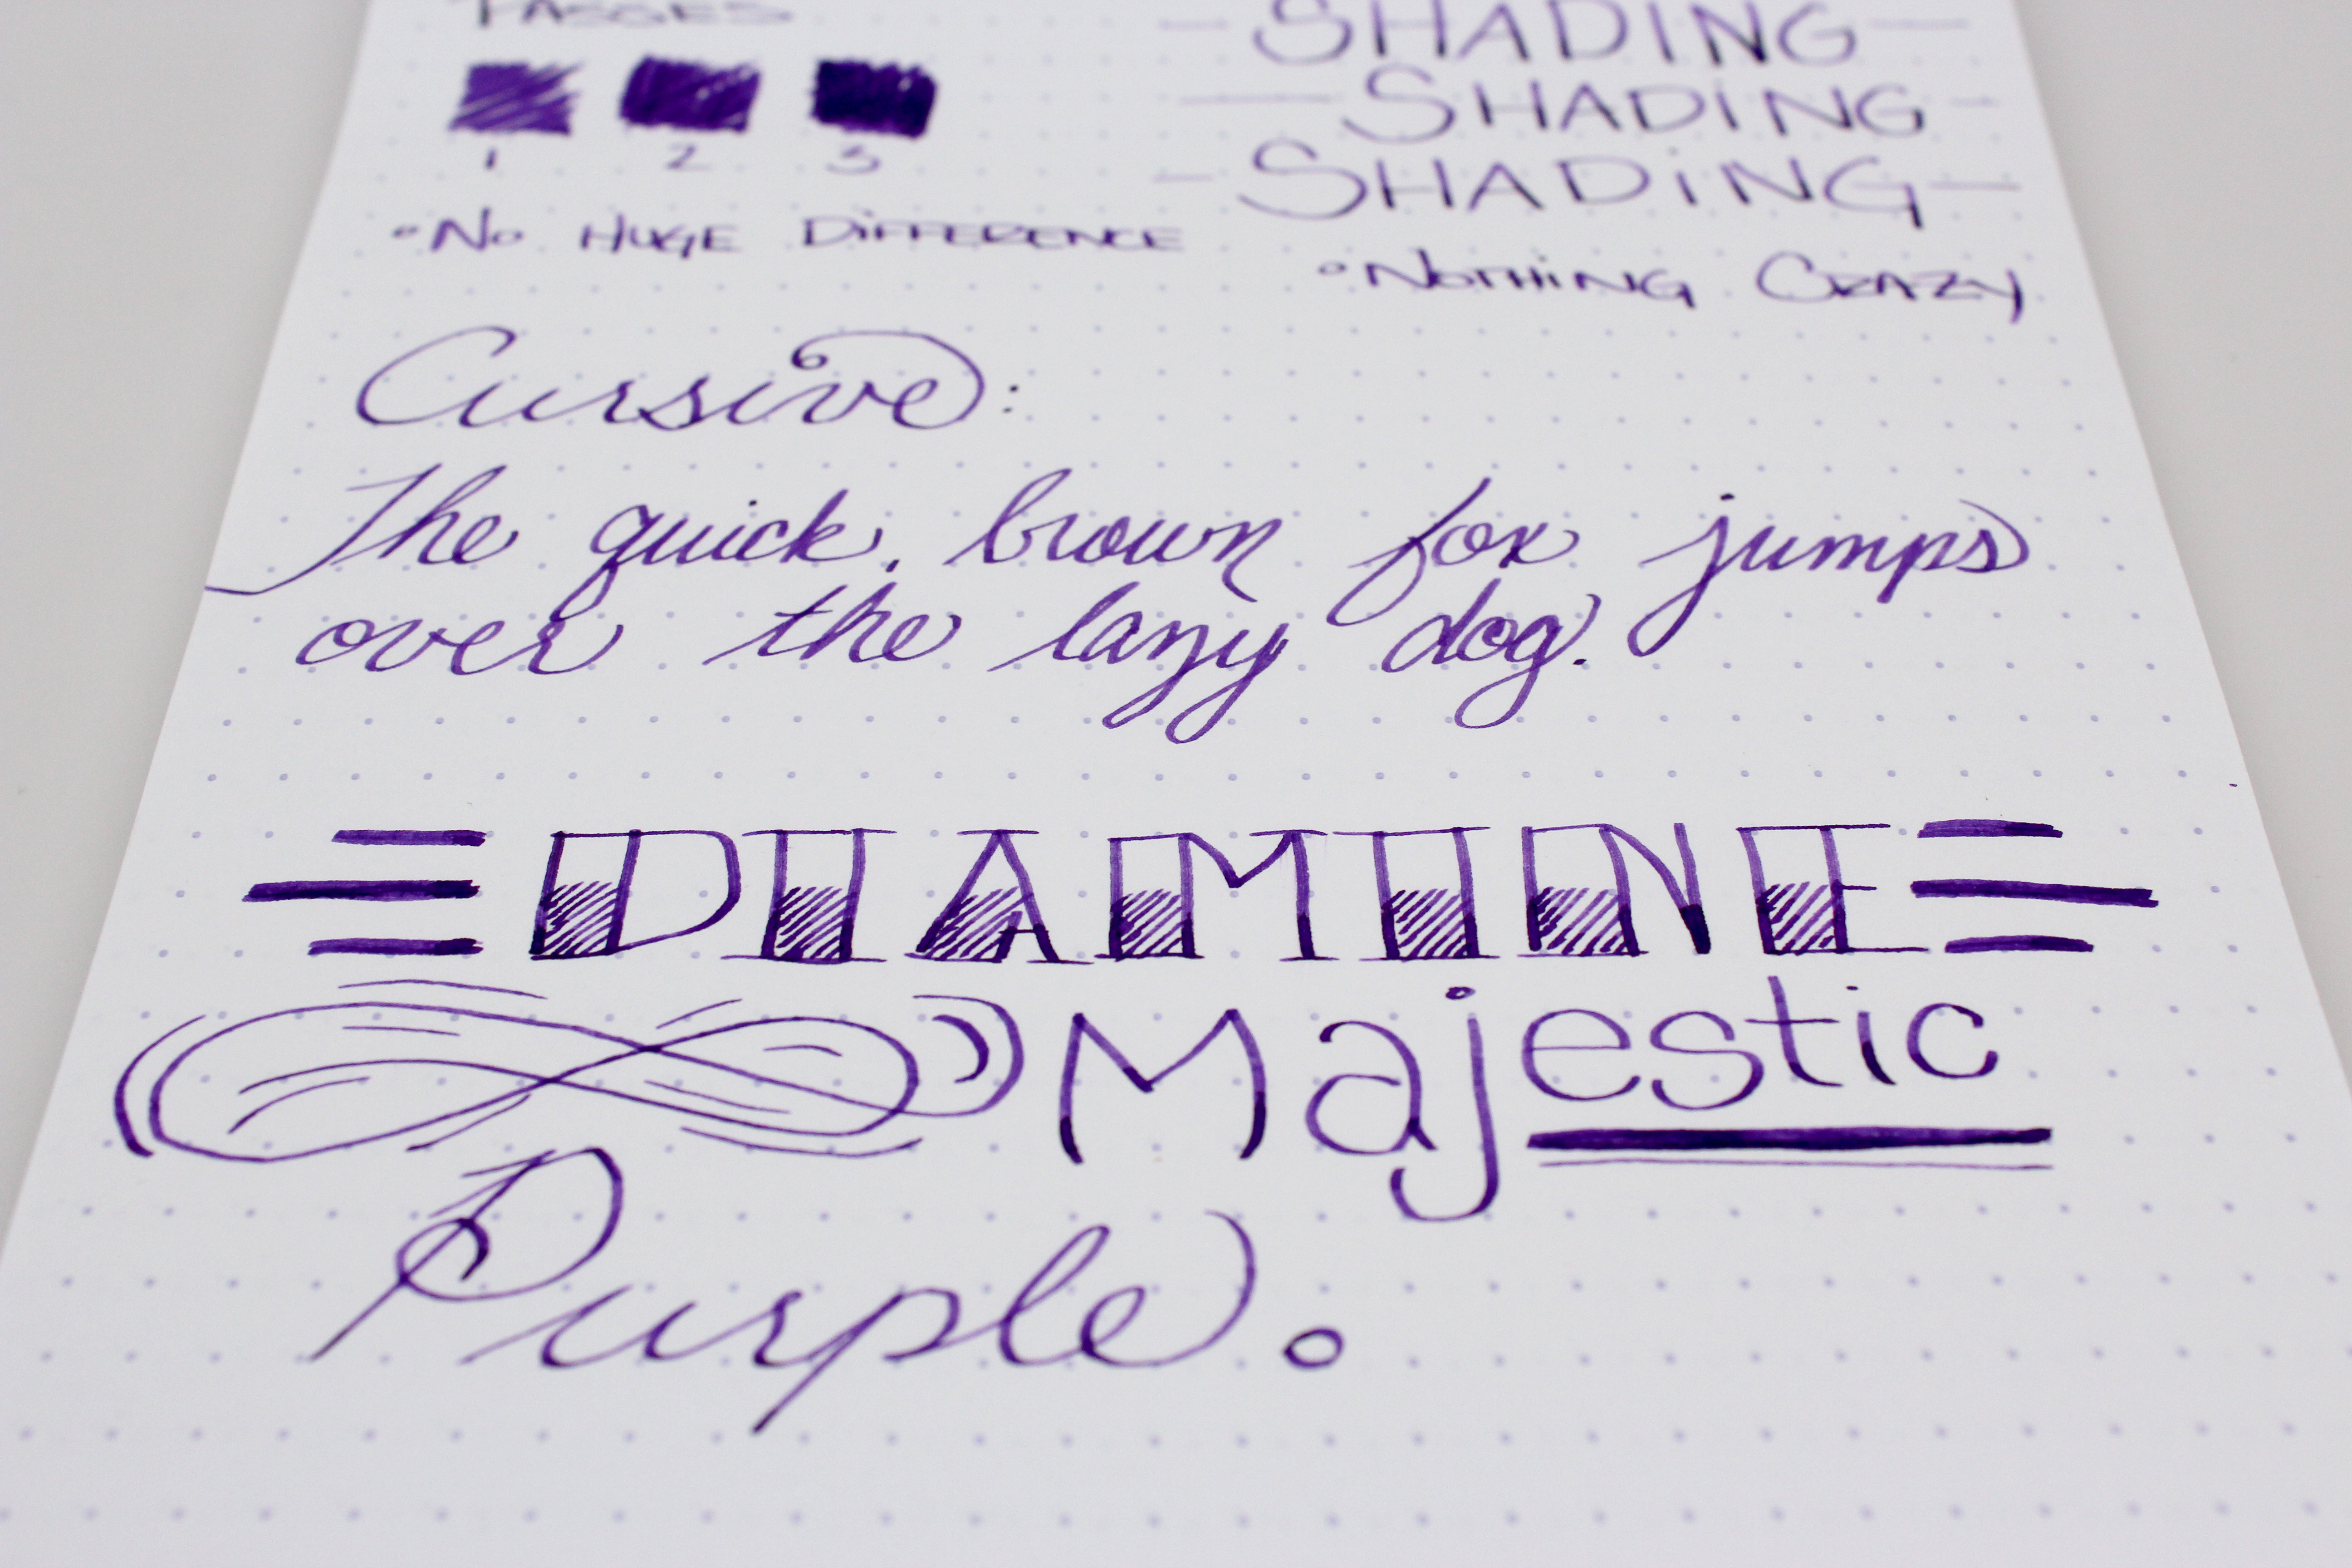 PASSES
1 2 3
•No HUGE DiFFERENCE
SHADING
SHADiNG
SHADiNG
•NOTHiNG CRAZY
Cursive:
The quick, brown fox jumps
over the lazy dog.
DIAMINE
Majestic
Purple.